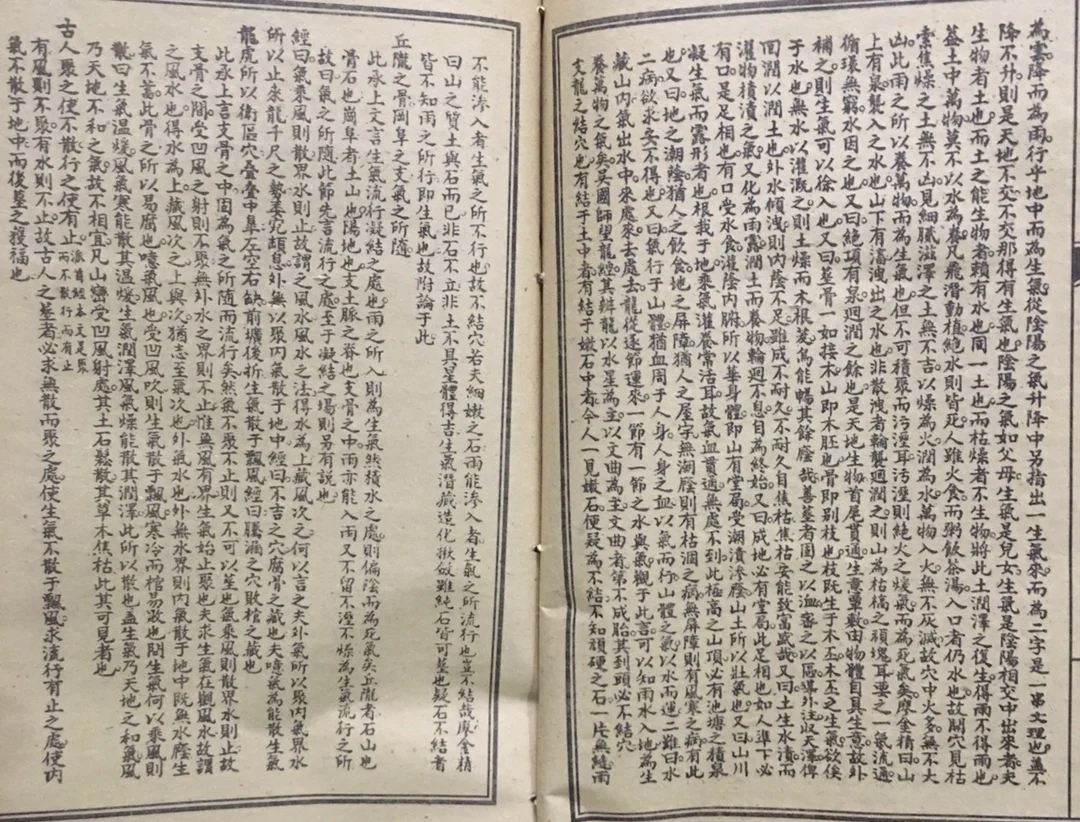 為雲降而為雨行乎地中而為生氣從陰陽之氣升降中另指出一生氣來而為二字是一串文理也蓋不
降不升則是天地不交不交那得有生氣也陰陽之氣如父母生氣是兒女生氣是陰陽相交中出來者夫
生物者土也而土之能生物者賴有水也同一土也而枯燥者不生物將此土潤澤之復生得雨不得雨也
蓋土中萬物莫不以水為養凡飛潛動植絕水則皆死人雖火食而粥飲茶湯入口者仍水也故開穴見枯
索焦燥之土無不凶見細膩滋澤之土無不吉以燥為火潤為水萬物入火無不灰滅故穴中火多無不大
凶此雨之所以養萬物而為生氣也但不可積聚而污溼耳污溼則絕火之煖氣而為死氣矣廖金精曰山
上有泉襲入之水也山下有瀉洩出之水也非散洩者輪襲週潤之則山為枯槁之頑塊耳要之一氣流通
循環無窮水因之也又曰絕頂有泉迴潤之餘也是天地生物首尾貫通生意畢數由物體自具生意故外
補之則生氣可以徐入也又曰葬骨一如接木山即木胚也骨即别枝也枝既生于木丕木丕之生氣欲俟
于水也無水以灌溉之則土燥而木根茇焉能暢其餘蔭哉善葬者圍之以溫密之以區導外注以天澤俾
回潤以潤土也外水傾洩則內蔭不足雖成不耐久不耐久自焦枯焦枯安能致富盛哉又曰土生水漬而
灌物積漬之氣又化為雨露潤土而養物輪迴不息自為終始又曰成地必有堂局此足相也如人準下必
有口是足相也有口受水食灌蔭內腑所以華身體即山有堂局受潮漬滲蔭山土所以壯氣也又曰山川
凝生氣而露形者也根莪于地乘氣灌養常活耳故氣血貫通無處不到此極高之山頂必有池塘之積泉
也又曰地之潮蔭猶人之飲食地之屏障猶人之屋宇無潮蔭則有枯涸之病無屏障則有風寒之病有此
二病欲求安不得也又曰氣行于山體猶血周于人身人身之血以氣而行山體之氣以水而運二雖曰水
藏山內氣出水中來處來去處去龍從逐節運來一節有一節之水與氣觀于此言可以知雨水入地為生
養萬物之氣矣吳國師望龍經其辨龍以水星為主以文曲為主文曲者第不成胎其到頭必不結穴
支龍之結穴也有結于土中者有結于嫩石中者今人一見嫩石便疑為不結不知頑硬之石一片無縫雨
不能滲入者生氣之所不行也故不結穴若夫細嫩之石雨能滲入者生氣之所流行也豈不結哉廖金精
曰山之質土與石而已非石不立非土不具星體得吉生氣潛藏還化揪敂雖純石皆可葬也疑石不結者
皆不知雨之所行即生氣也故附論于此
丘隴之骨岡阜之支氣之所隨
此承上文言生氣流行凝結之處也雨之所入則為生氣然積水之處則偏陰而為死氣矣丘隴者石山也
骨石也岡阜者土山也陽地也支土脈之脊也支骨之中雨亦能入雨又不留不溼不燥為生氣流行之所
故曰氣之所隨此節先言流行之處至于凝結之場則另有說也
經曰氣乘風則散界水則止故謂之風水風水之法得水為上藏風次之何以言之夫外氣所以聚內氣界水
所以止來龍千尺之勢委宛頓息外無以聚內氣散于地中經曰不吉之穴腐骨之藏也夫噫氣為能散生氣
龍虎所以衛區穴疊疊中阜左空右缺前壙後折生氣散于飄風經曰騰漏之穴敗棺之藏也
此承上言支骨之中固為氣之所隨而流行矣然氣不聚不止則又不可以葬也氣乘風則散界水則止故
支骨之間受凹風之射則不聚無外水之界則不止惟無風有界生氣始止聚也夫求生氣在觀風水故謂
之風水也得水為上藏風次之上與次猶忐至氣次也外氣水也外無水界則內氣散于地中既無水蔭生
氣不蓄此骨之所以易腐也噫氣風也受凹風吹則生氣散于飄風寒冷而棺易敗也問生氣何以乘風則
散曰生氣溫煖風氣寒能散其溫煖生氣潤澤風氣燥能散其潤澤此所以散也蓋生氣乃天地之和氣風
乃天地不和之氣故不相宜凡山巒受凹風射處其土石鬆散其草木焦枯此其可見者也
古人聚之使不散行之使有止派首經本文是聚而不散行而有止
有風則不聚有水則不止故古人之葬者必求無散而聚之處使生氣不散于飄風求流行有止之處使內
氣不散于地中而後葬之獲福也